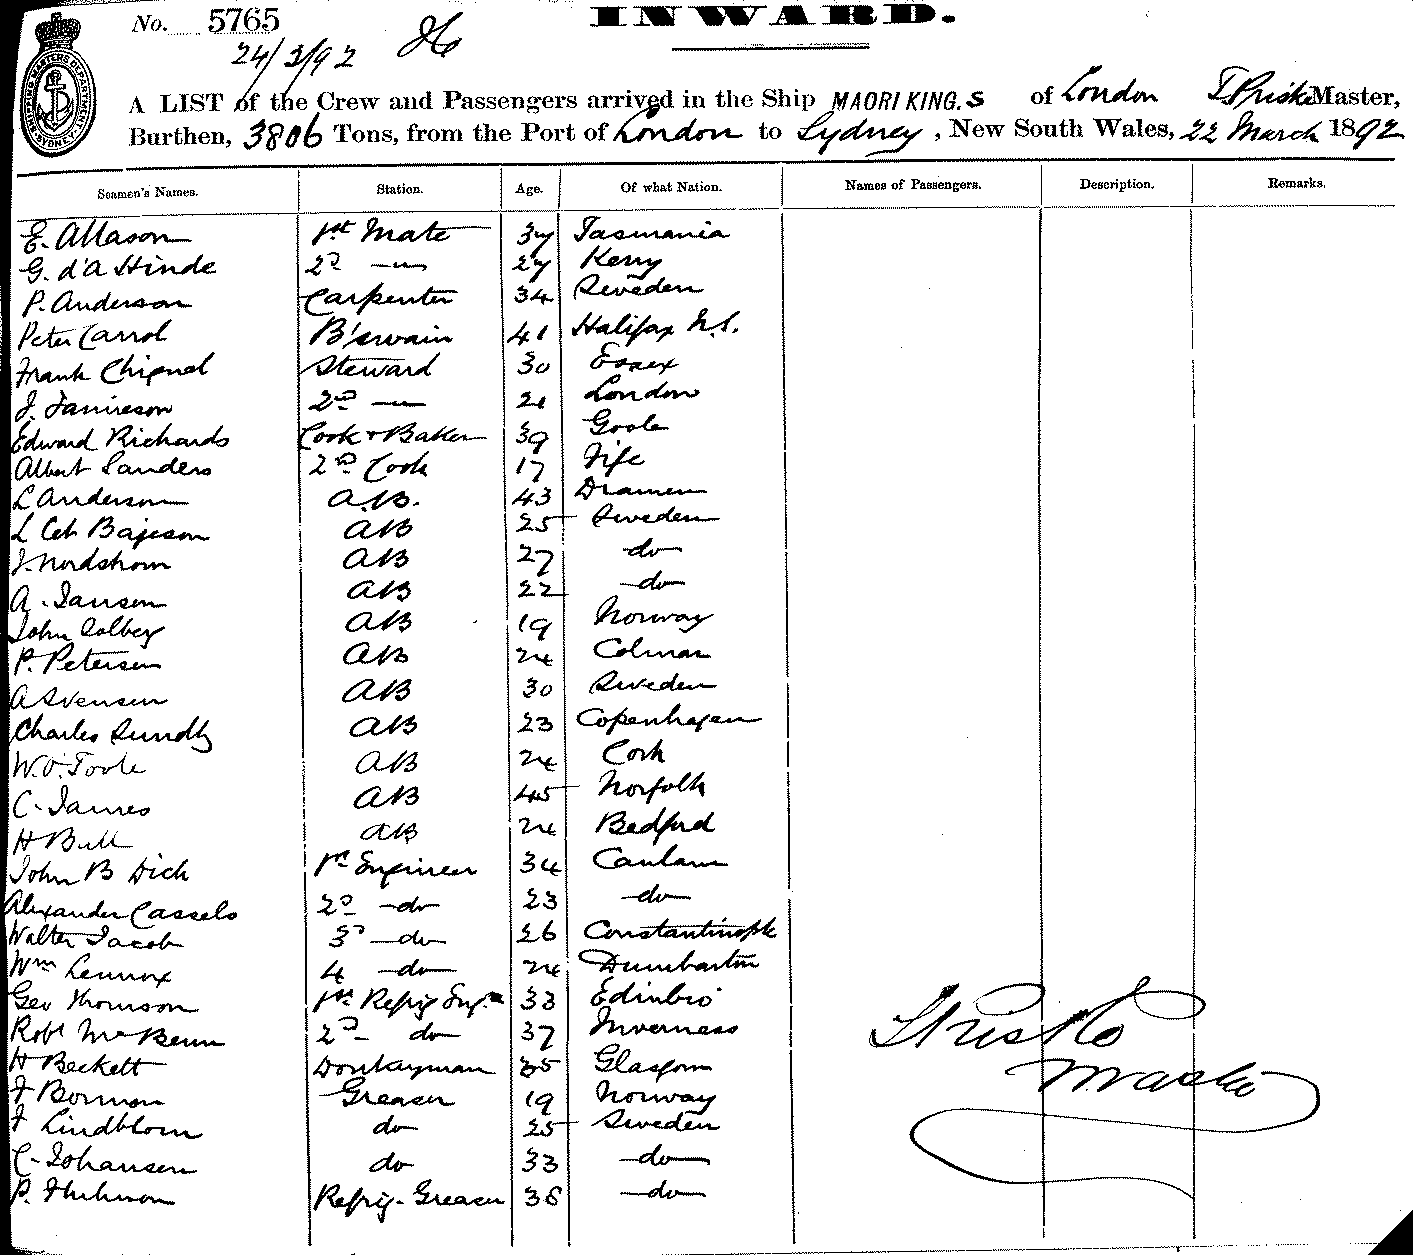 No. 5765
INWARD.
24/3/92
A LIST of the Crew and Passengers arrived in the Ship MAORI KING. S of London T Priske Master,
Burthen, 3806 Tons, from the Port of London to Sydney, New South Wales, 22 March 1892
Seamen's Names. Station. Age. Of what Nation. Names of Passengers. Description. Remarks.
E. Allason 1st Mate 37 Tasmania
G. d'A Hinde 2D —"— 27 Kerry
P. Anderson Carpenter 34 Sweden
Peter Carrol B'swain 41 Halifax N.S.
Frank Chignel Steward 30 Essex
J. Jamieson 2nd —"— 21 London
Edward Richards Cook & Baker 39 Goole
Albert Sanders 2nd Cook 17 Fife
L Anderson A.B. 43 Dramen
L AB 25 Sweden
J. Nordstrom AB 27 do
A. Jansen AB 22 do
John Solberg AB 19 Norway
P. Petersen AB 24 Colmar
A Svensen AB 30 Sweden
Charles Sundby AB 23 Copenhagen
W. O'Toole AB 24 Cork
C. James AB 45 Norfolk
H Bull AB 24 Bedford
John B Dick 1st Engineer 34
Alexander Cassels 2D do 23 do
Walter Jacob 3D do 26 Constantinople
Wm Lennox 4 do 24 Dumbarton
Geo Thomson 1st Refrig Engr 33 Edinbro
Robt McBenn 2D do 37 Inverness
H Beckett Donkeyman 35 Glasgow
F Borman Greaser 19 Norway
F Lindblom do 25 Sweden
C. Johansen do 33 do
P. Refrig. Greaser 36 do
T Priske
Master